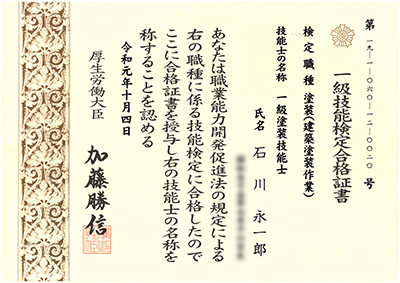 第一九-一-〇六〇-一二-〇〇二〇号
一級技能検定合格証書
検定職種 塗装(建築塗装作業)
技能士の名称 一級塗装技能士
氏名 石川永一郎
あなたは職業能力開発促進法の規定による
右の職種に係る技能検定に合格したので
ここに合格証書を授与し右の技能士の名称を
称することを認める
令和元年十月四日
厚生労働大臣
加藤勝信